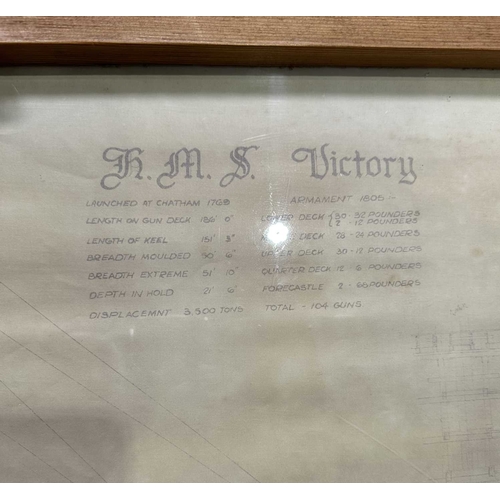 H.M.S. Victory
LAUNCHED AT CHATHAM
ARMAMENT 1805 :-
LENGTH ON GUN DECK 186' 0"
LOWER DECK { 30 - 32 POUNDERS
{ 2 - 12 POUNDERS
LENGTH OF KEEL 151' 3"
DECK 28 - 24 POUNDERS
BREADTH MOULDED 50' 6"
UPPER DECK 30 - 12 POUNDERS
BREADTH EXTREME 51' 10"
QUARTER DECK 12 - POUNDERS
DEPTH IN HOLD 21' 6"
FORECASTLE 2 - POUNDERS
DISPLACEMNT 3,500 TONS
TOTAL - 104 GUNS